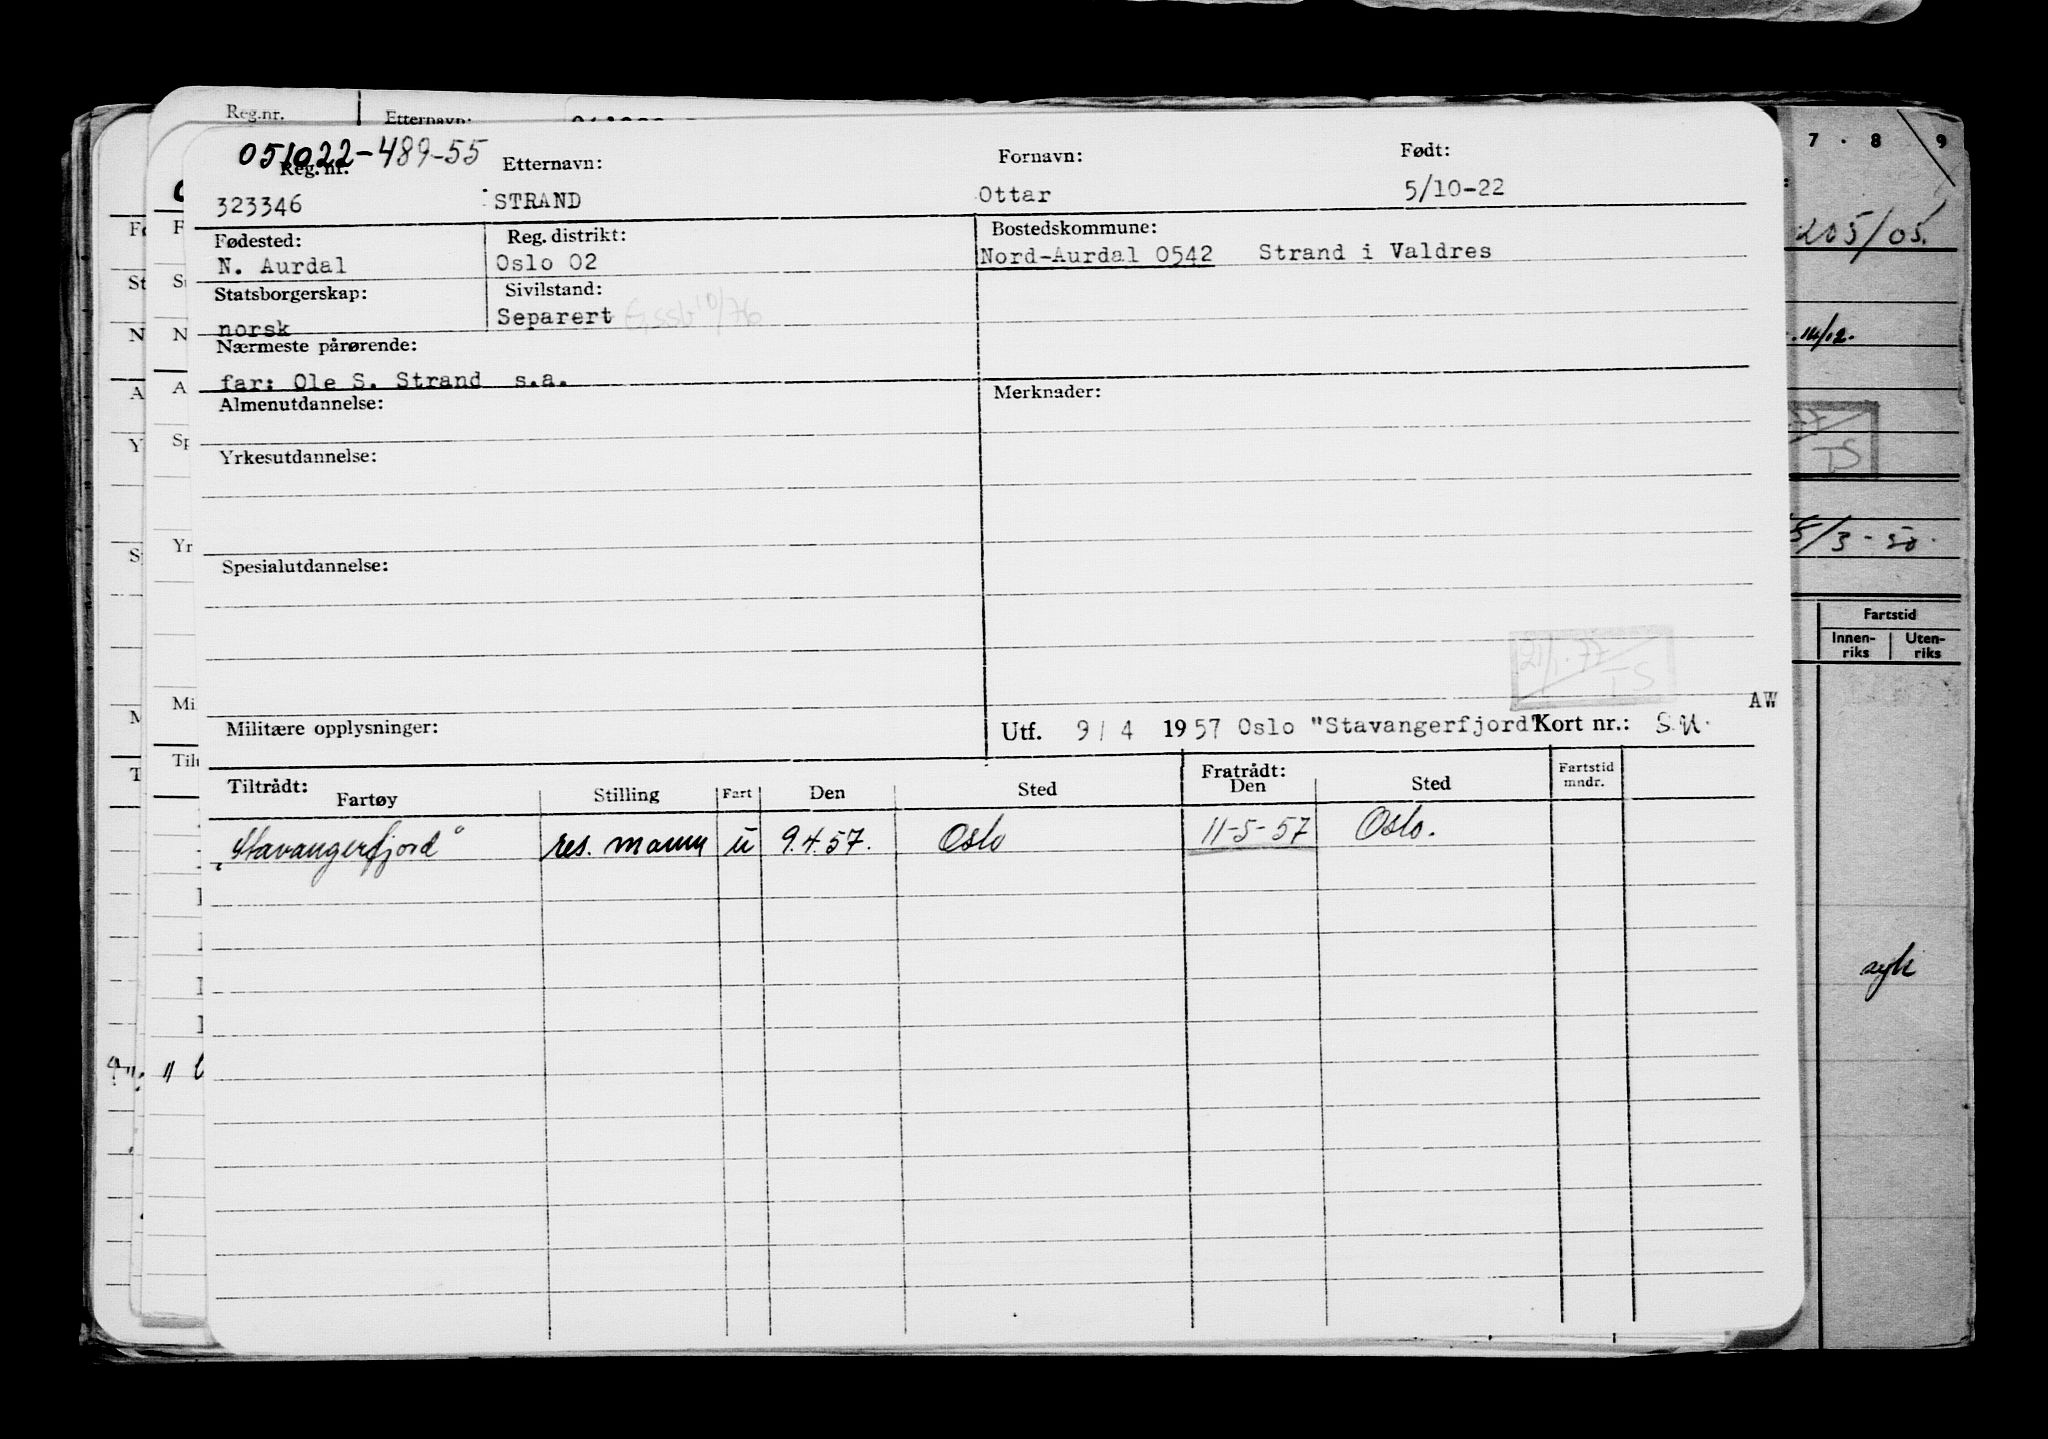 Reg.nr. Etternavn:
7 . 8 9
051022-489-55
Reg. nr. Etternavn: Fornavn: Født:
323346 STRAND Ottar 5/10-22
205/05.
Fødested: Reg. distrikt: Bostedskommune:
N. Aurdal Oslo 02 Nord-Aurdal 0542 Strand i Valdres
Statsborgerskap: Sivilstand:
norsk Separert
14/12.
Nærmeste pårørende:
far: Ole S. Strand s.a.
Almenutdannelse: Merknader:
TS
Yrkesutdannelse:
/3-50.
Spesialutdannelse:
Fartstid
Innen-riks Uten-riks
21/1.77
TS
AW
Militære opplysninger: Utf. 9/4 1957 Oslo "Stavangerfjord" Kort nr.: S.U.
Tiltrådt: Fratrådt:
Fartøy Stilling Fart Den Sted Den Sted Fartstid mndr.
"Stavangerfjord" res. mann u 9.4.57. Oslo 11-5-57 Oslo.